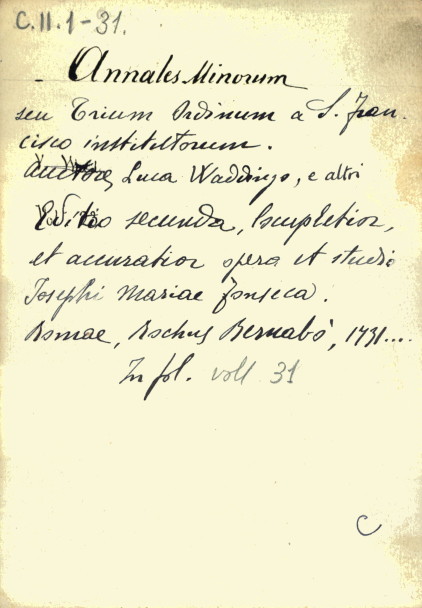 C.II.1-31.
Annales Minorum
seu Trium Ordinum a S. Fran-
cisco institutorum.
Auctore, Luca Waddingo, e altri
Editio secunda, locupletior,
et accuratior opera et studio
Josephi Mariae Fonseca.
Romae, Rochus Bernabò, 1731....
In fol. voll 31
C